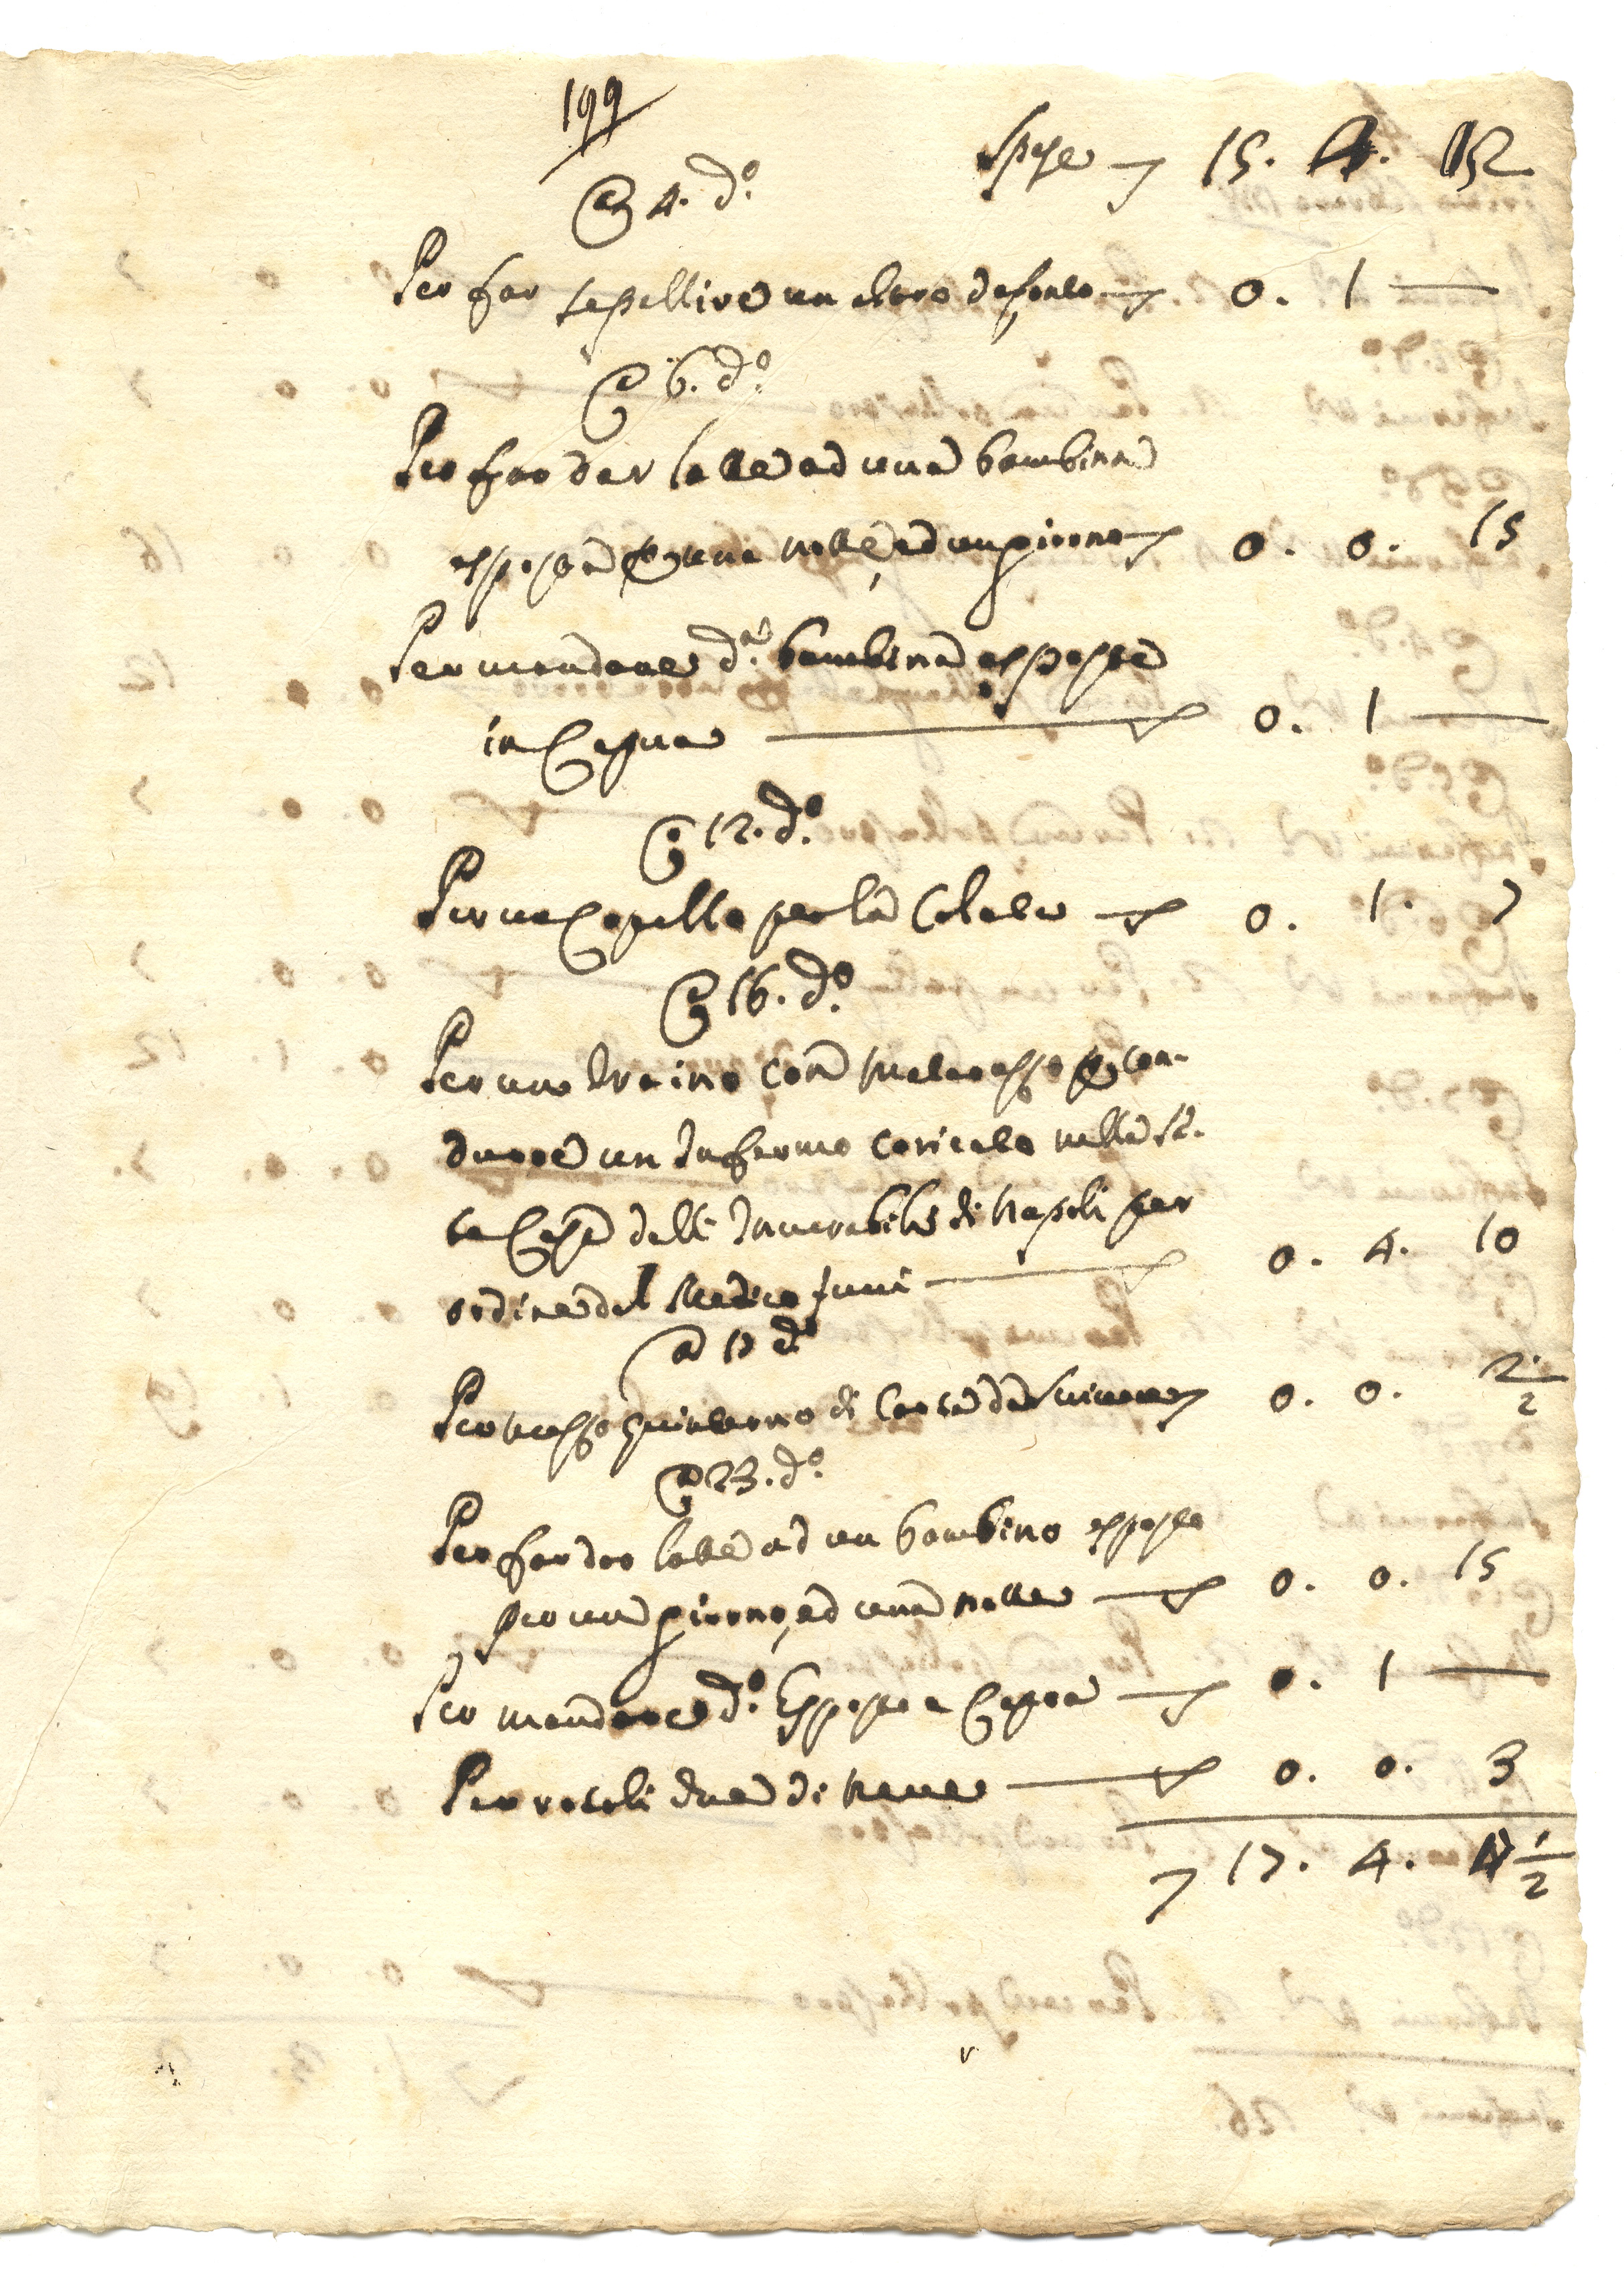 199
Spese 15. 4. 12
A 4. d.º
Per far sepellire un altro defonto 0. 1 —
A 6. d.º
Per far dar latte ad una bambina
esposta per una notte, ed un giorno 0. 0. 15
Per mandare d.ª bambina esposta
in Capua 0. 1 —
A 12. d.º
Per una 0. 1. 7
A 16. d.º
Per uno traino con materasso per con-
durre un Infermo coricato nella S.
ta Casa delli Incurabili di Napoli per
ordine del Medico 0. 4. 10
A 17 d.º
Per mezzo quinterno di Carta da scrivere 0. 0. 2 1/2
A 23. d.º
Per far dar latte ad un bambino esposto
per un giorno, ed una notte 0. 0. 15
Per mandare d.º Esposto a Capua 0. 1 —
Per rotoli due di neve 0. 0. 3
17. 4. 4 1/2